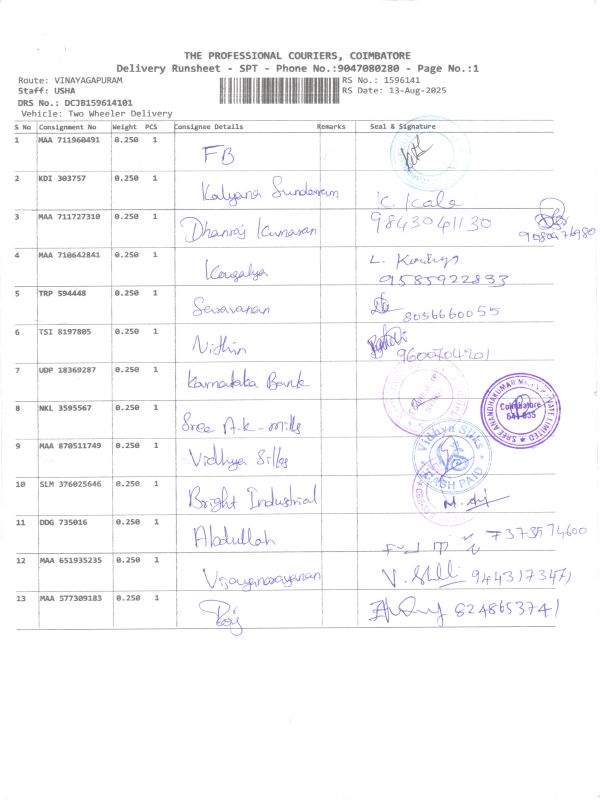 THE PROFESSIONAL COURIERS, COIMBATORE
Delivery Runsheet - SPT - Phone No.:9047080280 - Page No.:1
Route: VINAYAGAPURAM RS No.: 1596141
Staff: USHA RS Date: 13-Aug-2025
DRS No.: DCJB159614101
Vehicle: Two Wheeler Delivery
S No Consignment No Weight PCS Consignee Details Remarks Seal & Signature
1 MAA 711960491 0.250 1 FB
2 KDI 303757 0.250 1 Kalyana Sundaram K. Kala
3 MAA 711727310 0.250 1 Dhanraj Kumaran 9843041130
4 MAA 710642841 0.250 1 Kousalya L. 9585922833
5 TRP 594448 0.250 1 Saravanan 8056660055
6 TSI 8197805 0.250 1 Nithin 9600704201
7 UDP 18369287 0.250 1 Karnataka Bank
8 NKL 3595567 0.250 1 Sree A.k-mills Coimbatore 641 035
9 MAA 870511749 0.250 1 Vidhya Silks Vidhya Silks CASH PAID
10 SLM 376025646 0.250 1 Bright Industrial
11 DDG 735016 0.250 1 Abdullah 7373574600
12 MAA 651935235 0.250 1 Vijayanarayanan V.
13 MAA 577309183 0.250 1 Roj 8248653741